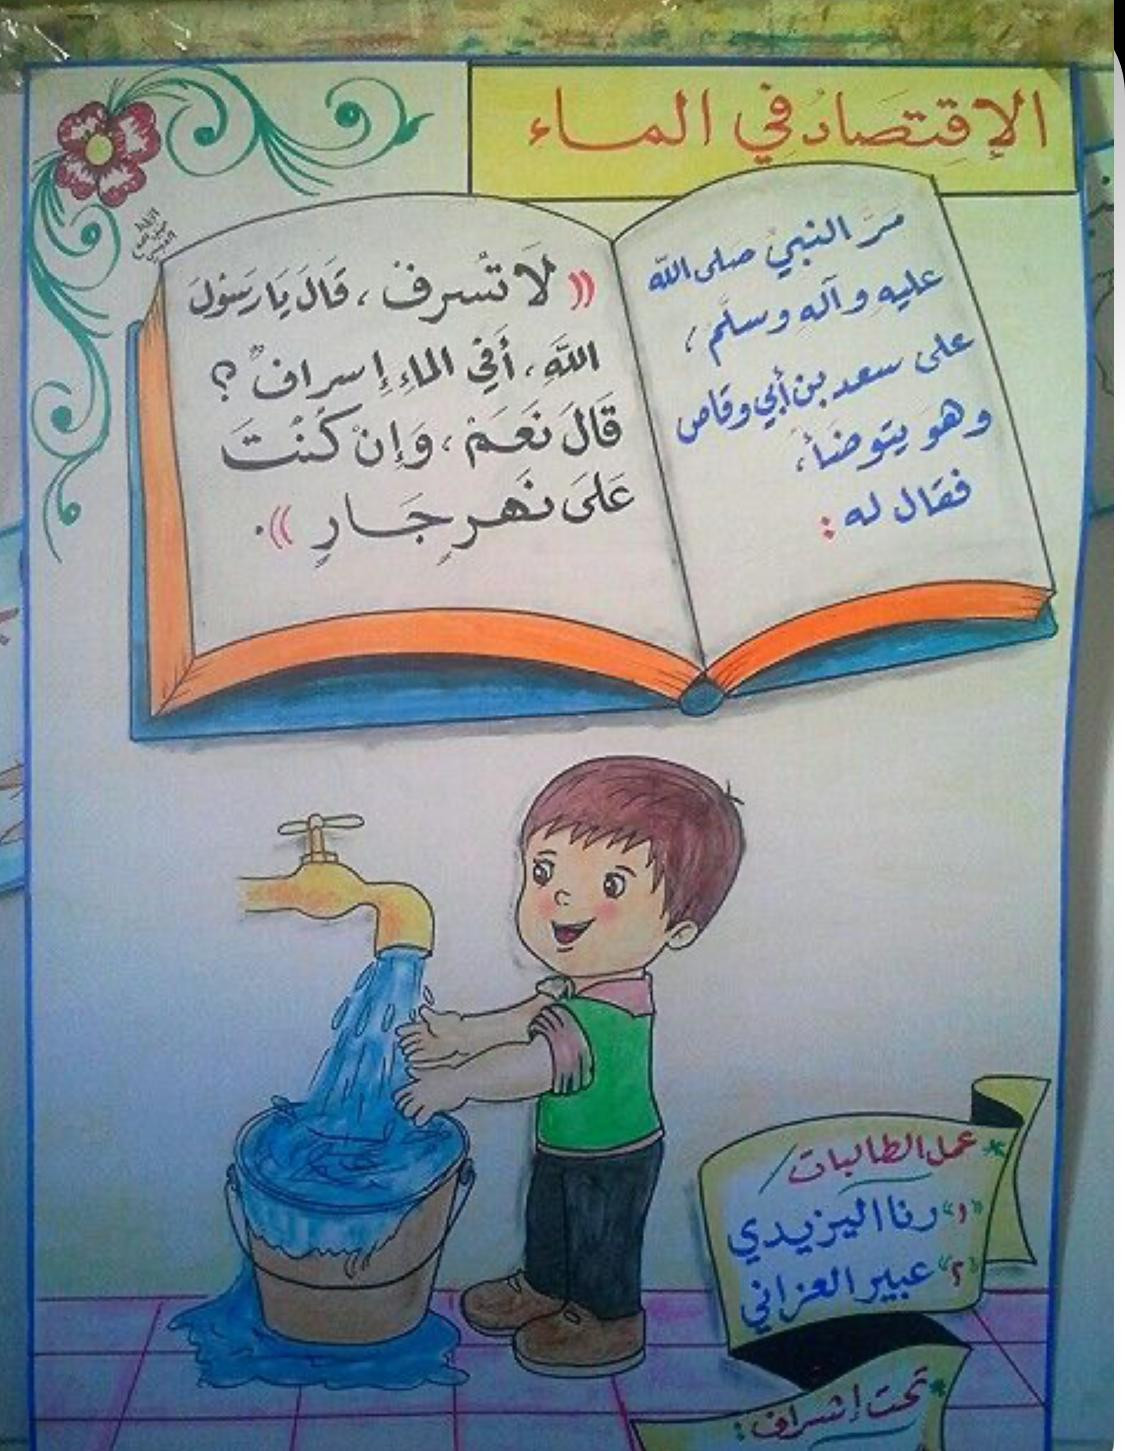 الإقتصاد في الماء
مَرَّ النبيُ صلى الله
عليه وآله وسلَّم ،
على سعد بن أبي وقاص
وهو يتوضأ،
فقال له :
(( لَا تُسرفْ ، قَالَ يَا رَسُولَ
اللَّهِ ، أَفِي الماءِ إِسرافٌ ؟
قَالَ نَعَمْ ، وَإِنْ كُنْتَ
عَلَى نَهرٍ جَارٍ )) .
* عمل الطالبات /
"١" رنا اليزيدي
"٢" عبير العزاني
* تحت إشراف :